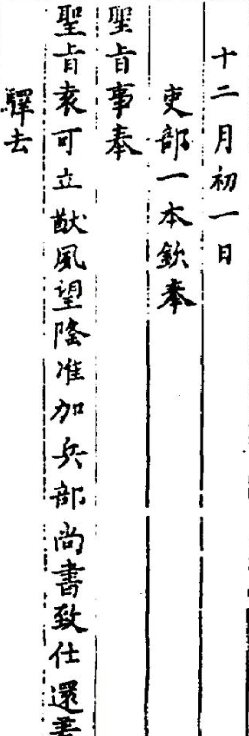 十二月初一日
吏部一本欽奉
聖旨事奉
聖旨袁可立猷風望隆准加兵部尚書致仕還著
驛去